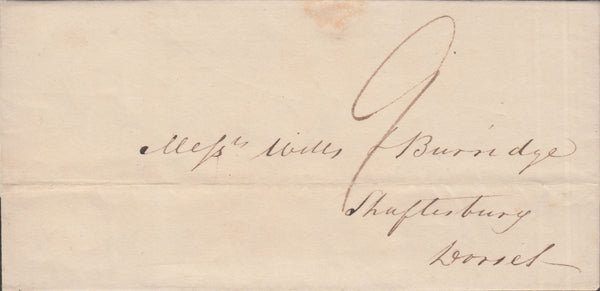 9
Messrs Wills & Burridge
Shaftesbury
Dorset